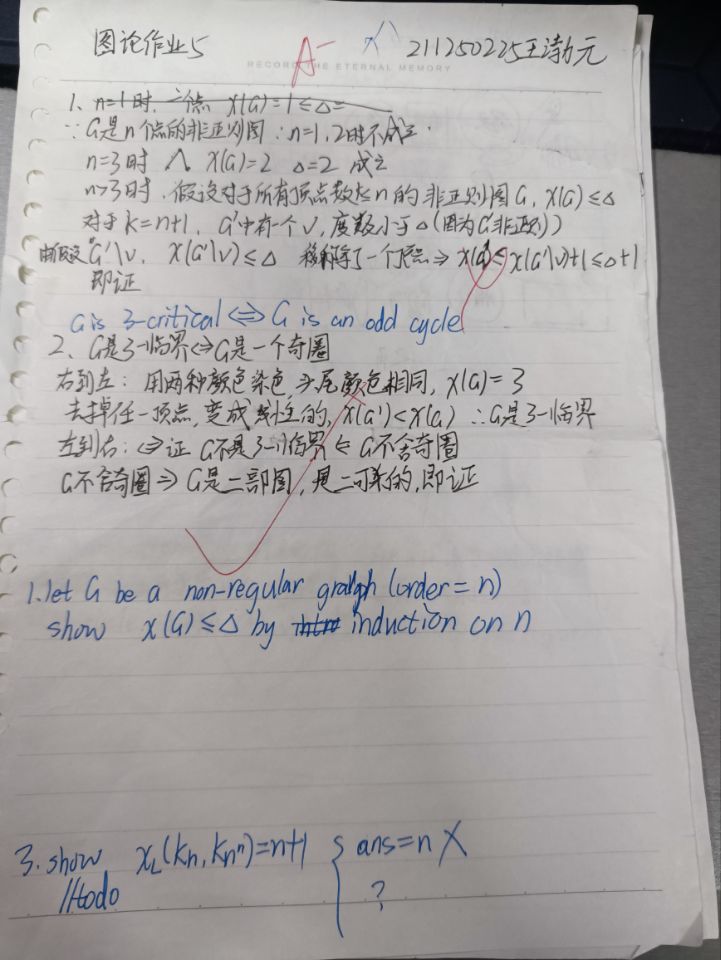 图论作业5
A-
211250225王渤元
RECORD THE ETERNAL MEMORY
1、n=1时,一个点 χ(G)=1≤Δ=
∵G是n个点的非正则图∴n=1,2时不成立.
n=3时 ∧ χ(G)=2 Δ=2 成立
n>3时,假设对于所有顶点数≤n的非正则图G,χ(G)≤Δ
对于k=n+1,G'中有一个v,度数小于Δ(因为G'非正则)
由假设 G'\v, χ(G'\v)≤Δ 移除了一个顶点⇒χ(G')≤χ(G'\v)+1≤Δ+1
即证
G is 3-critical⇔G is an odd cycle
2、G是3-临界⇔G是一个奇圈
右到左:用两种颜色染色,头尾颜色相同,χ(G)=3
去掉任一顶点,变成线性的,χ(G')<χ(G) ∴G是3-临界
左到右:⇔证 G不是3-临界⇐G不含奇圈
G不含奇圈⇒G是二部图,是二可染的,即证
1.let G be a non-regular graph (order=n)
show χ(G)≤Δ by induction on n
3.show χL(Kn,Knⁿ)=n+1 { ans=n X
//todo ?